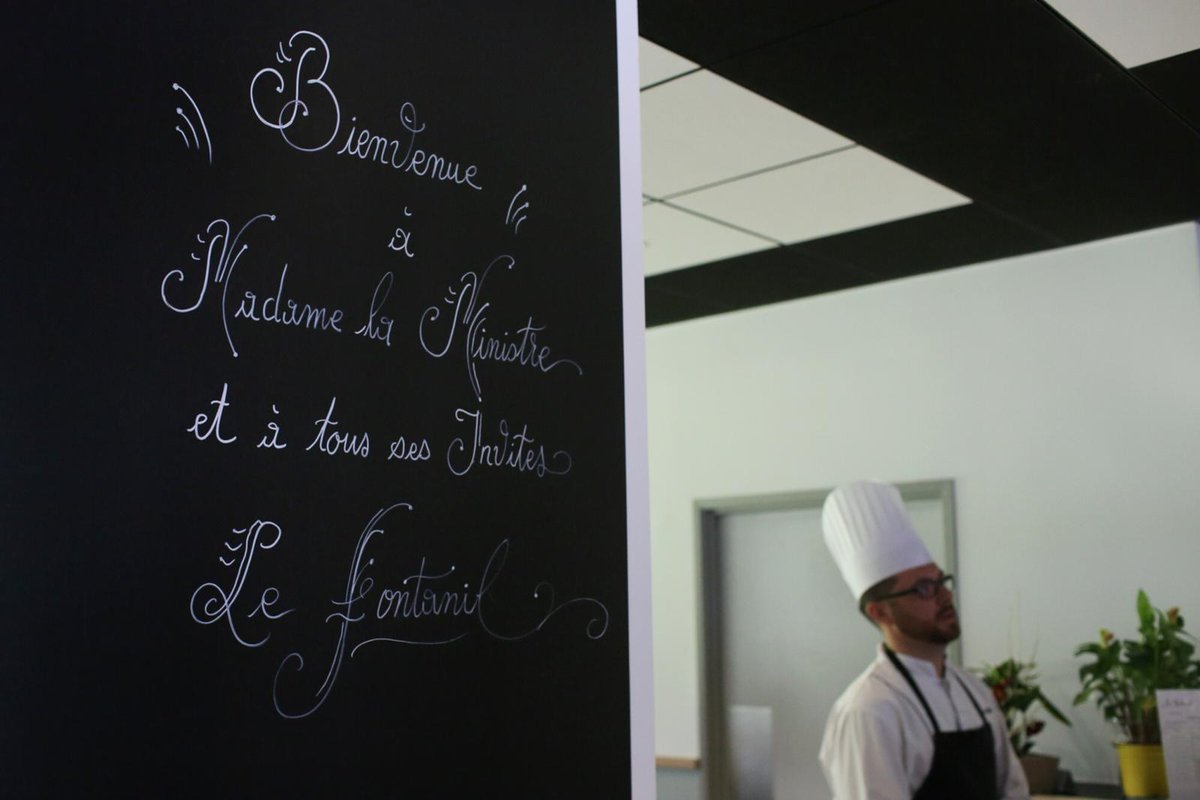 Bienvenue
à
Madame la Ministre
et à tous ses Invités
Le Fontanil